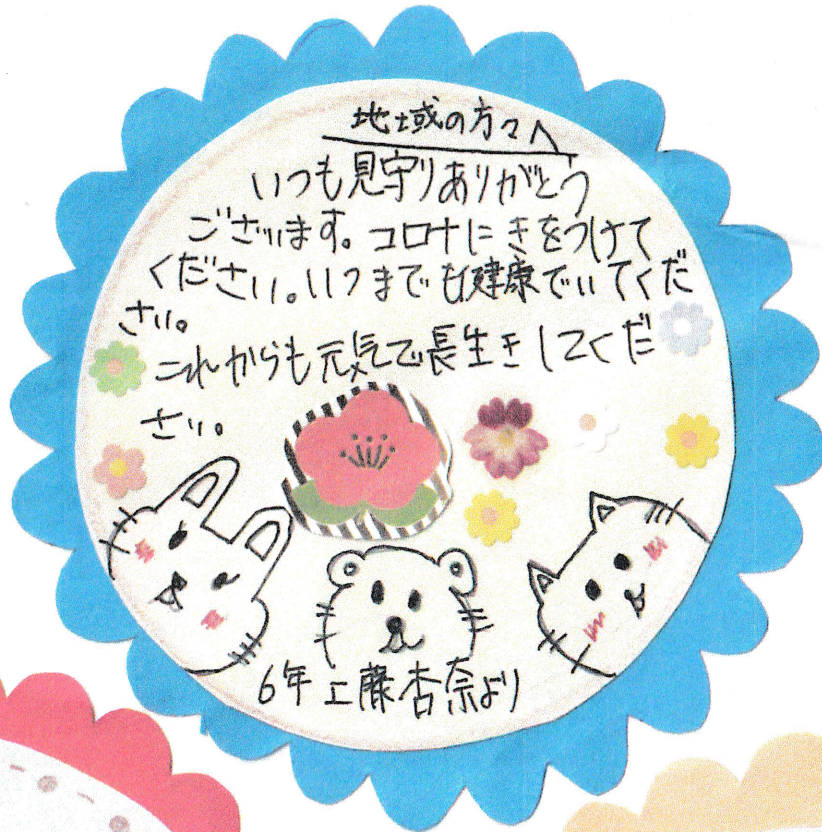 地域の方々へ
いつも見守りありがとう
ございます。コロナにきをつけて
ください。いつまでも健康でいてくだ
さい。
これからも元気で長生きしてくだ
さい。
6年工藤杏奈より